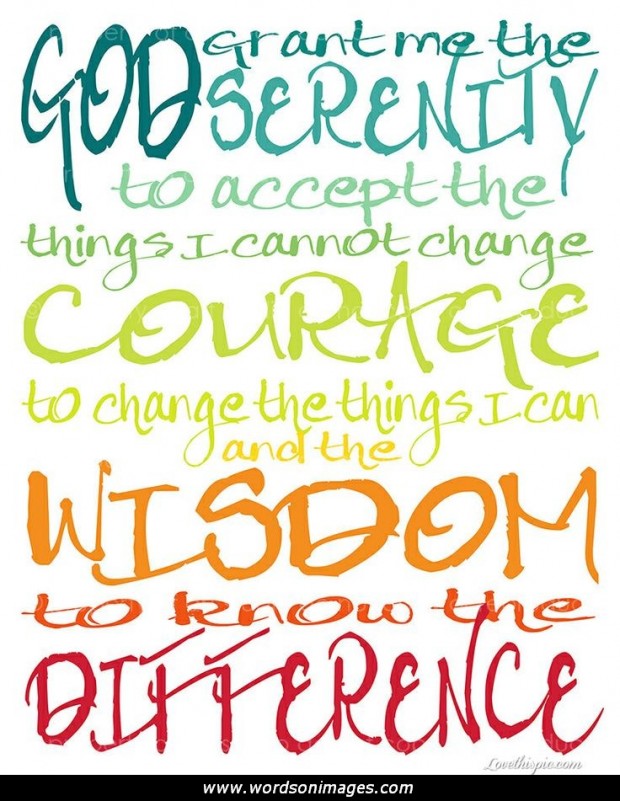 GOD grant me the
SERENITY
to accept the
things I cannot change
COURAGE
to change the things I can
and the
WISDOM
to know the
DIFFERENCE
Lovethispic.com
www.wordsonimages.com